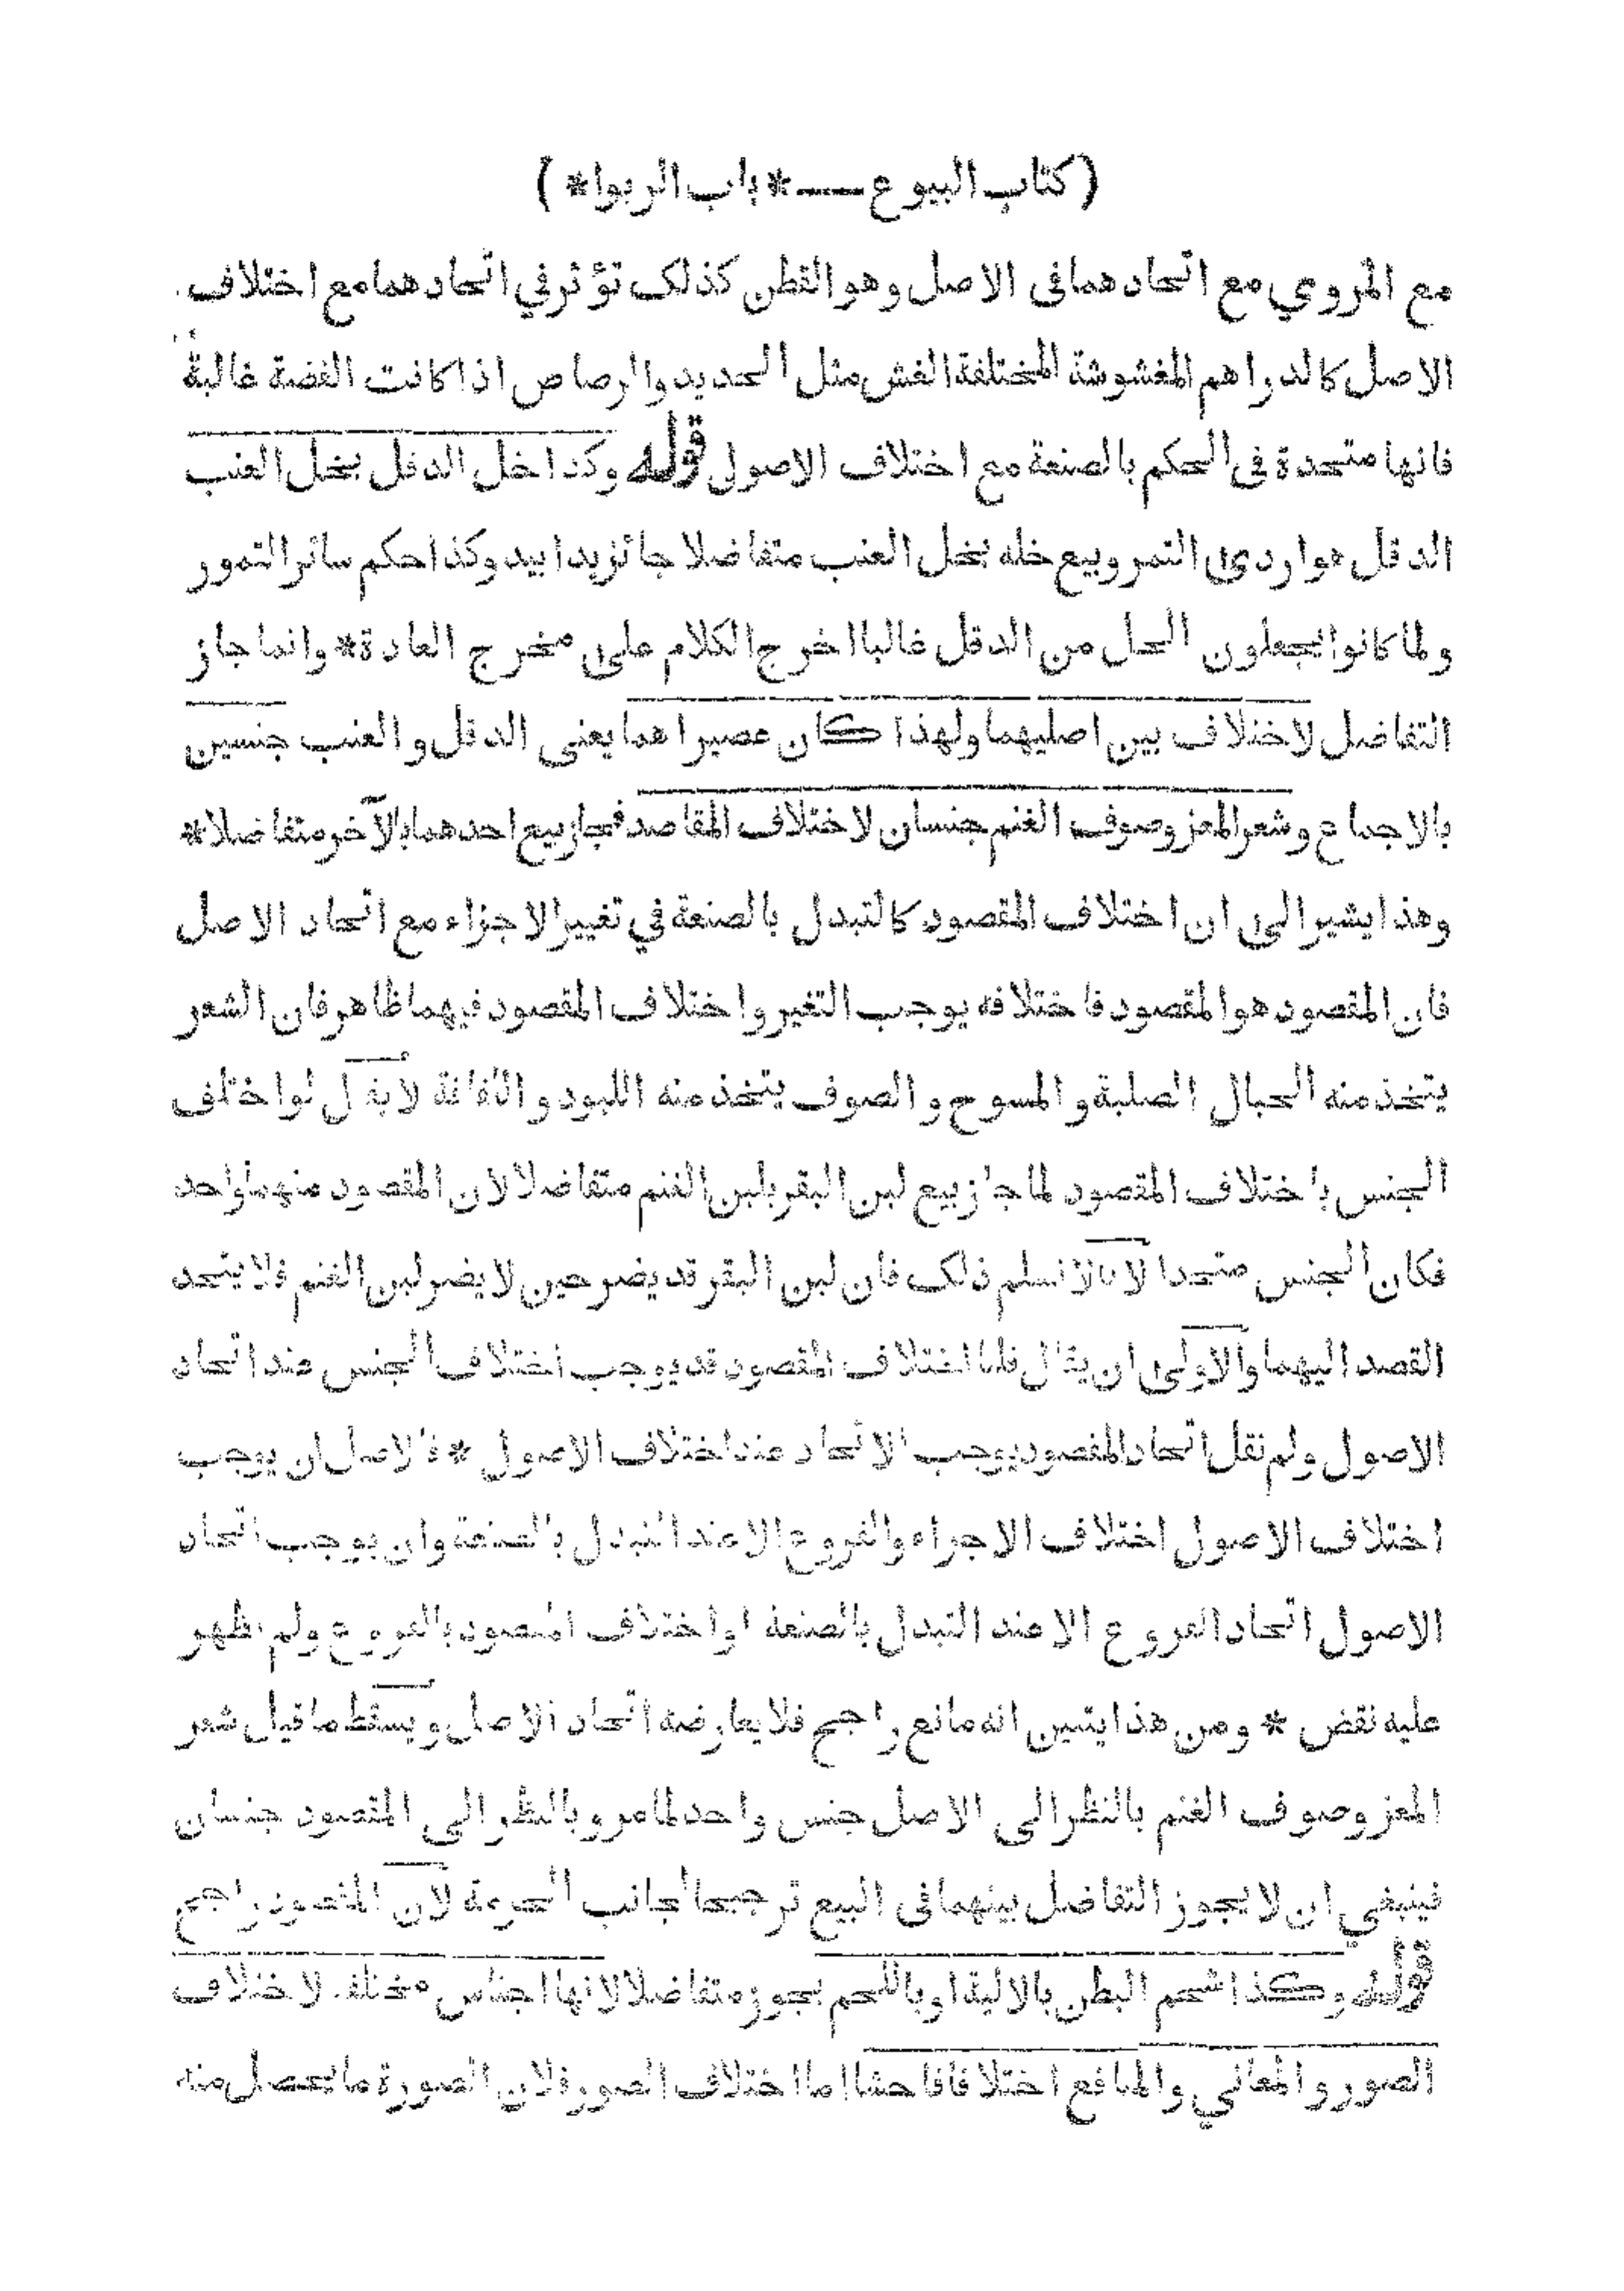 ( كتاب البيوع — * باب الربوا * )
مع المروي مع اتحادهما فى الاصل وهو القطن كذلك تؤثر في اتحادهما مع اختلاف
الاصل كالدراهم المغشوشة المختلفة الغش مثل الحديد والرصاص اذا كانت الفضة غالبة
فانها متحدة فى الحكم بالصنعة مع اختلاف الاصول قوله وكذا خل الدقل بخل العنب
الدقل هو اردى التمر وبيع خله بخل العنب متفاضلا جائز يدا بيد وكذا حكم سائر التمور
ولما كانوا يجعلون الخل من الدقل غالبا اخرج الكلام على مخرج العادة * وانما جاز
التفاضل لاختلاف بين اصليهما ولهذا كان عصيراهما يعنى الدقل و العنب جنسين
بالاجماع وشعر المعز وصوف الغنم جنسان لاختلاف المقاصد فجاز بيع احدهما بالآخر متفاضلا *
وهذا يشير الى ان اختلاف المقصود كالتبدل بالصنعة في تغيير الاجزاء مع اتحاد الاصل
فان المقصود هو المقصود فاختلافه يوجب التغير واختلاف المقصود فيهما ظاهر فان الشعر
يتخذ منه الحبال الصلبة و المسوح و الصوف يتخذ منه اللبود و اللفافة لا يقال لو اختلف
الجنس باختلاف المقصود لما جاز بيع لبن البقر بلبن الغنم متفاضلا لان المقصود منهما واحد
فكان الجنس متحدا لانا لا نسلم ذلك فان لبن البقر قد يضر حين لا يضر لبن الغنم فلا يتحد
القصد اليهما والاولى ان يقال قلنا اختلاف المقصود قد يوجب اختلاف الجنس عند اتحاد
الاصول ولم نقل اتحاد المقصود يوجب الاتحاد عند اختلاف الاصول * فالاصل ان يوجب
اختلاف الاصول اختلاف الاجزاء والفروع الا عند التبدل بالصنعة وان يوجب اتحاد
الاصول اتحاد الفروع الا عند التبدل بالصنعة او اختلاف المقصود بالفروع ولم يظهر
عليه نقض * ومن هذا يتبين انه مانع راجح فلا يعارضه اتحاد الاصل ويسقط ما قيل شعر
المعز وصوف الغنم بالنظر الى الاصل جنس واحد لما مر وبالنظر الى المقصود جنسان
فينبغي ان لا يجوز التفاضل بينهما فى البيع ترجيحا لجانب الحرمة لان المقصود راجح
قوله وكذا شحم البطن بالالية او باللحم يجوز متفاضلا لانها اجناس مختلفة لاختلاف
الصور والمعاني والمنافع اختلافا فاحشا اما اختلاف الصور فلان الصورة ما يحصل منه